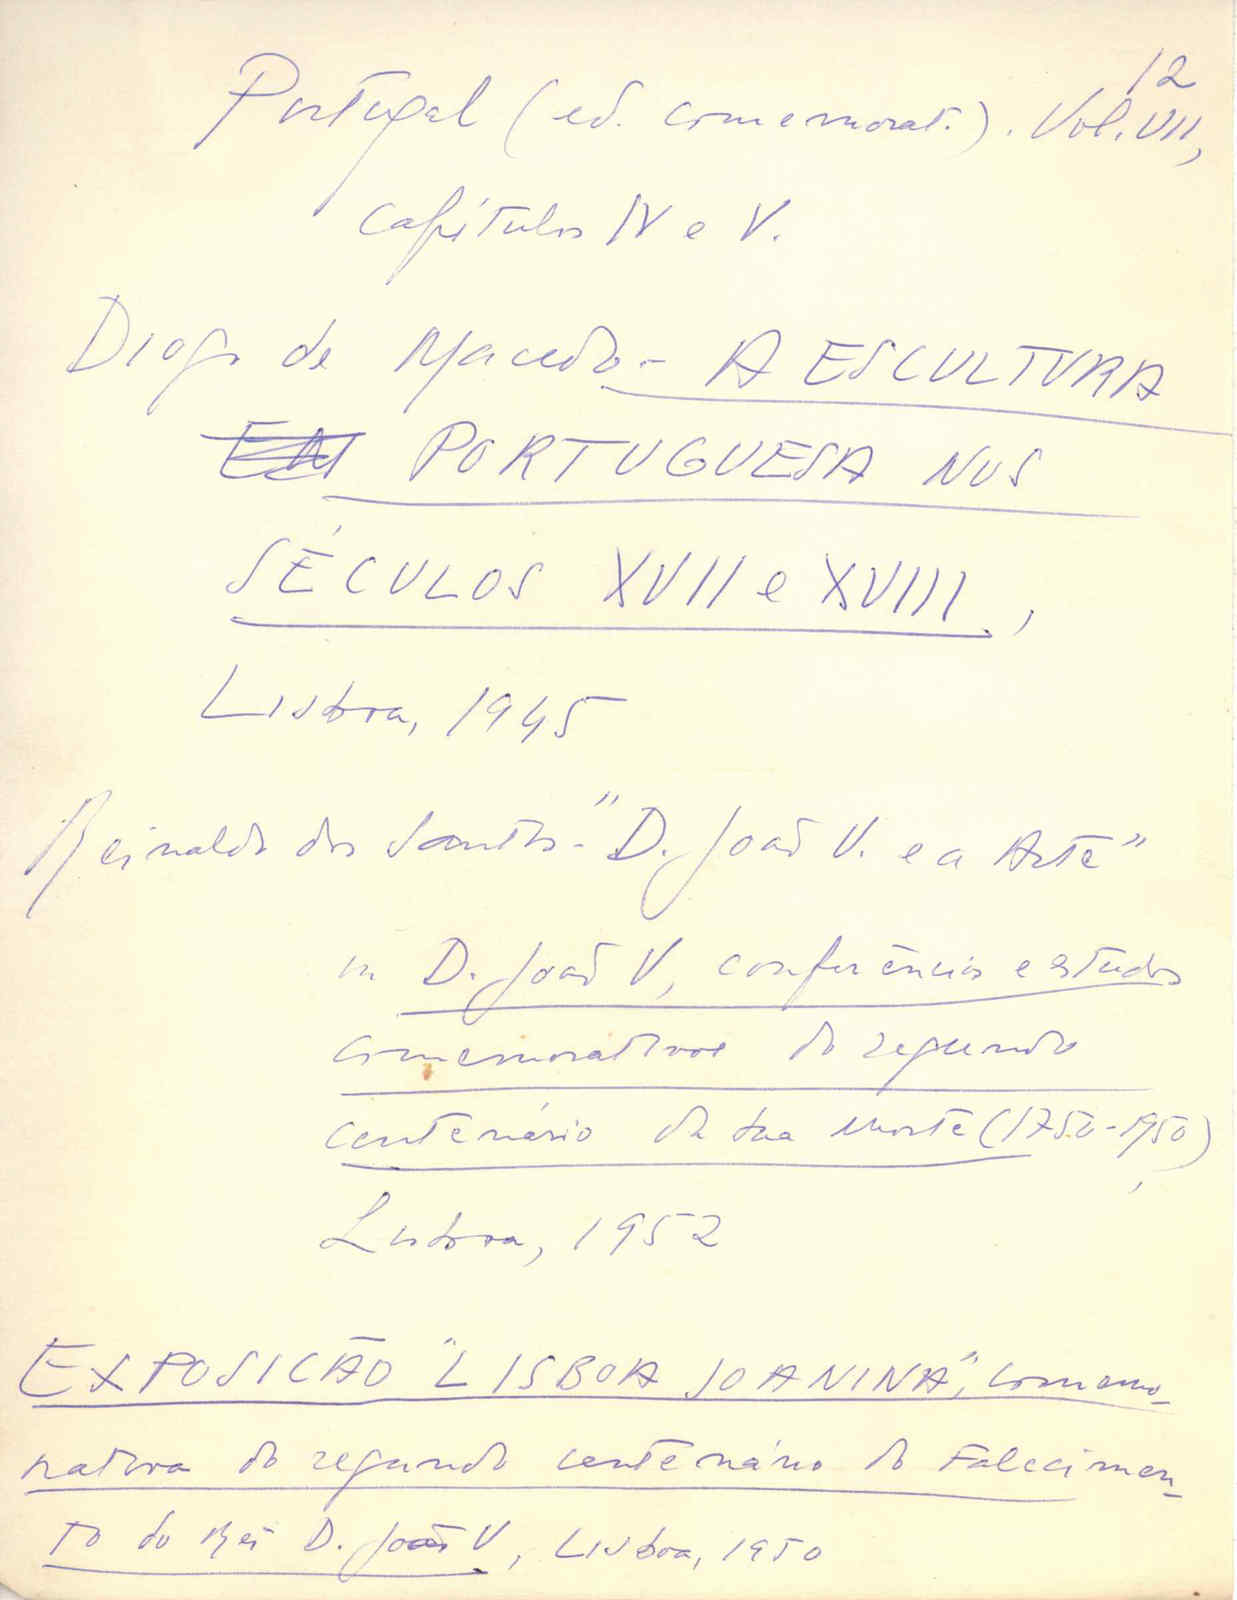 12
Portugal (ed. comemorat.). Vol. VII,
capítulos IV e V.
Diogo de Macedo - A ESCULTURA
EM PORTUGUESA NOS
SÉCULOS XVII e XVIII,
Lisboa, 1945
Reinaldo dos Santos - "D. João V. e a Arte"
in D. João V, conferências e estudos
comemorativos do segundo
centenário da sua morte (1750-1950),
Lisboa, 1952
EXPOSICÃO "LISBOA JOANINA", comemo-
rativa do segundo centenário do Falecimen-
to do Rei D. João V, Lisboa, 1950